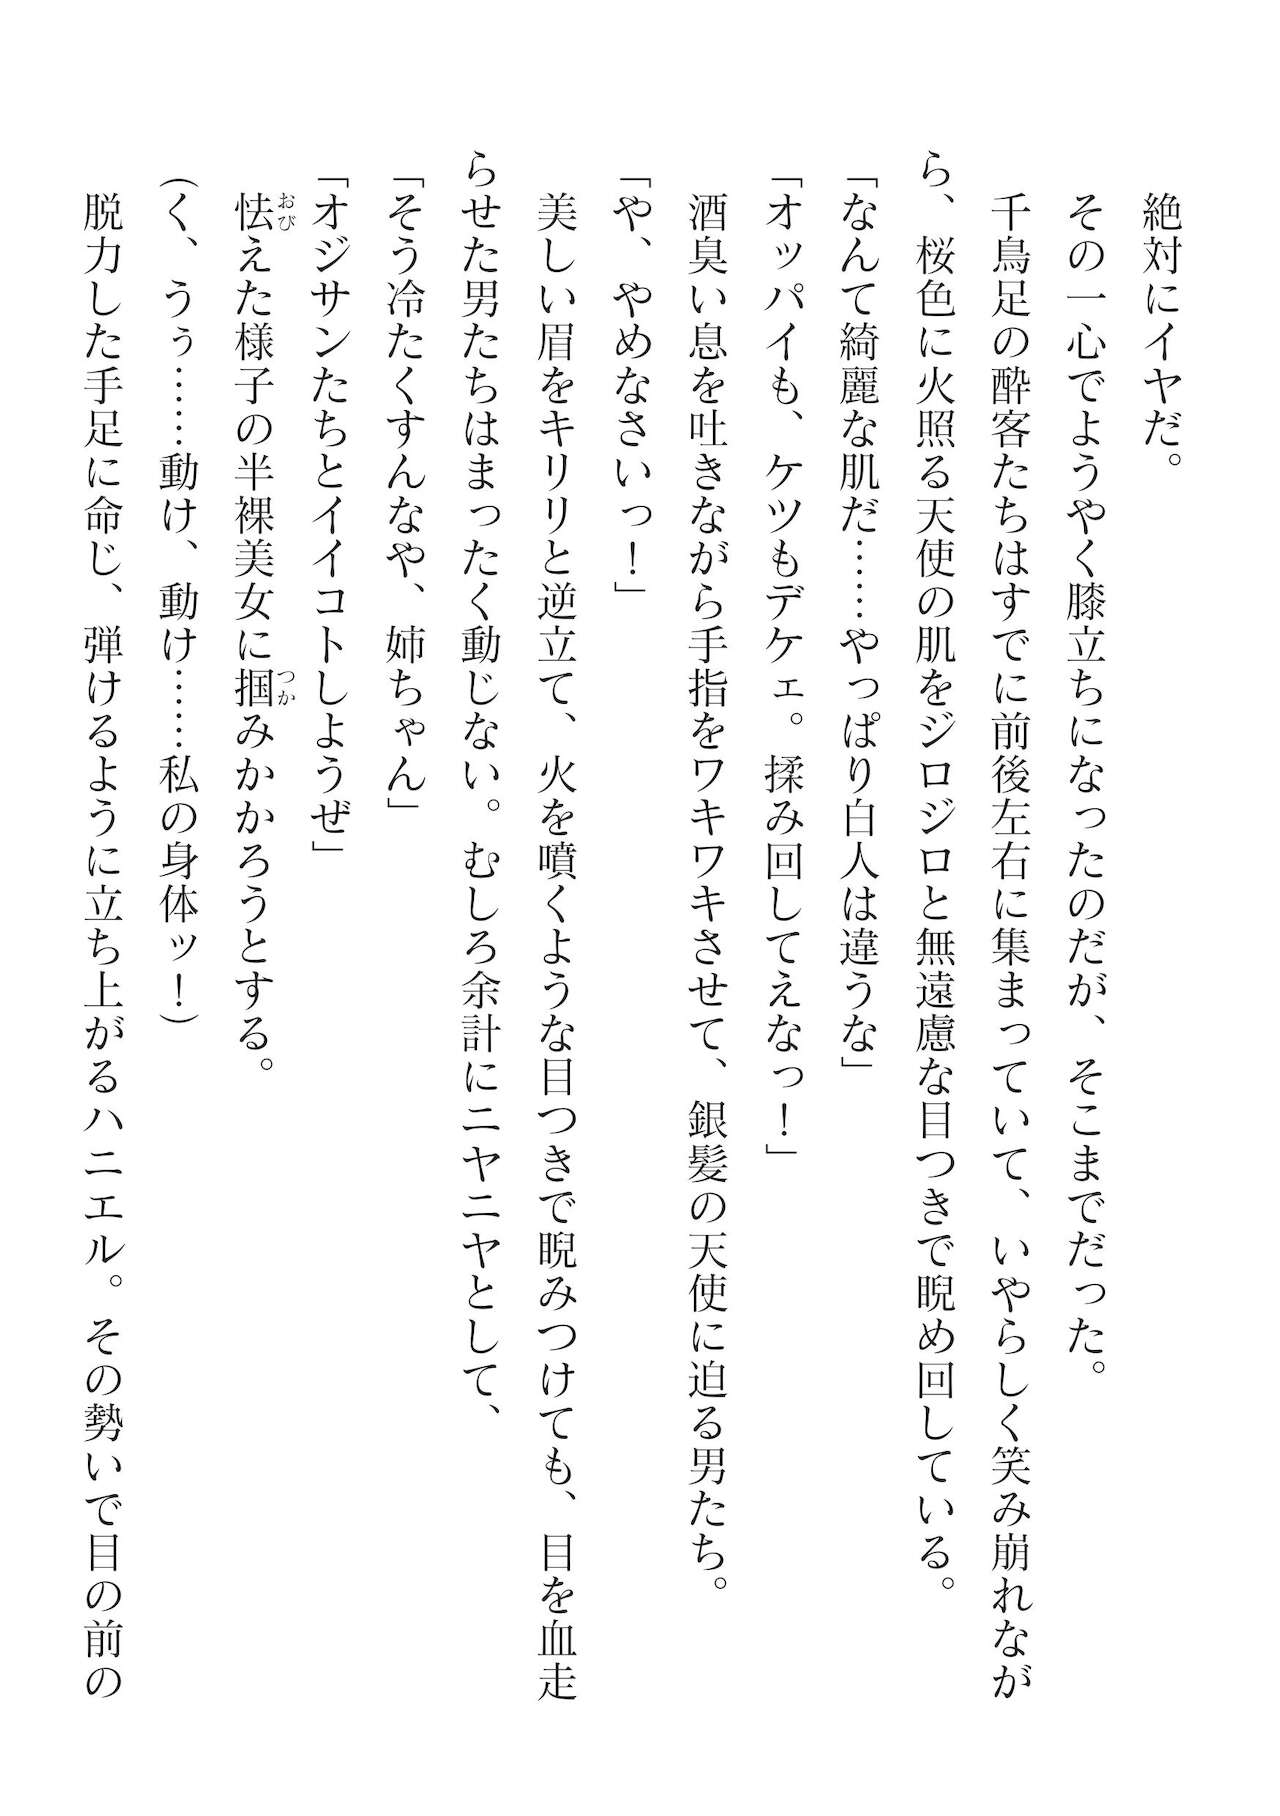 絶対にイヤだ。
その一心でようやく膝立ちになったのだが、そこまでだった。
千鳥足の酔客たちはすでに前後左右に集まっていて、いやらしく笑み崩れなが
ら、桜色に火照る天使の肌をジロジロと無遠慮な目つきで睨め回している。
「なんて綺麗な肌だ……やっぱり白人は違うな」
「オッパイも、ケツもデケェ。揉み回してえなっ！」
酒臭い息を吐きながら手指をワキワキさせて、銀髪の天使に迫る男たち。
「や、やめなさいっ！」
美しい眉をキリリと逆立て、火を噴くような目つきで睨みつけても、目を血走
らせた男たちはまったく動じない。むしろ余計にニヤニヤとして、
「そう冷たくすんなや、姉ちゃん」
「オジサンたちとイイコトしようぜ」
怯えた様子の半裸美女に掴みかかろうとする。
おび
つか
（く、うぅ……動け、動け……私の身体ッ！）
脱力した手足に命じ、弾けるように立ち上がるハニエル。その勢いで目の前の